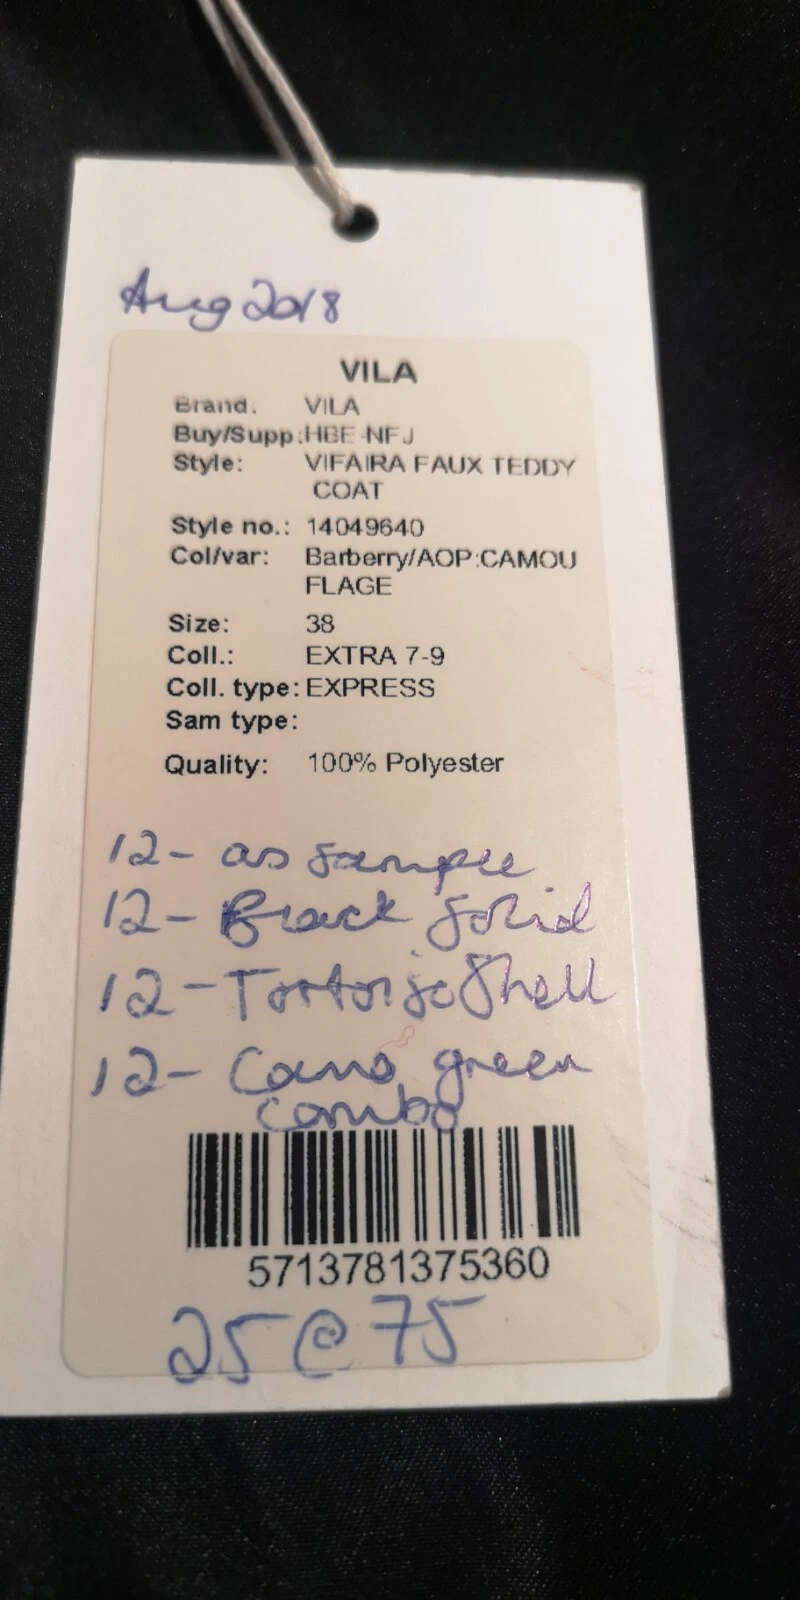 Aug 2018
VILA
Brand: VILA
Buy/Supp.: HBE-NFJ
Style: VIFAIRA FAUX TEDDY
COAT
Style no.: 14049640
Col/var: Barberry/AOP:CAMOU
FLAGE
Size: 38
Coll.: EXTRA 7-9
Coll. type: EXPRESS
Sam type:
Quality: 100% Polyester
12- as sample
12- Black Solid
12- Tortoise Shell
12- Camo green
combo
5713781375360
25@75